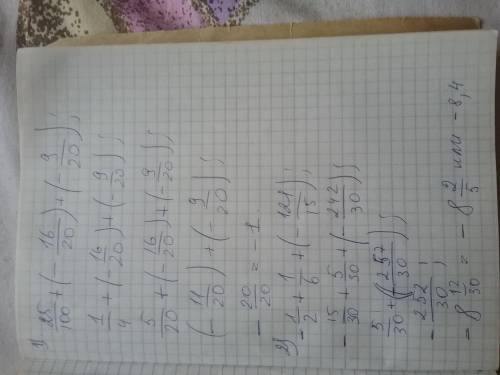 1) 25/100 + (- 16/20) + (- 9/20);
1/4 + (- 16/20) + (- 9/20);
5/20 + (- 16/20) + (- 9/20);
(- 11/20) + (- 9/20);
- 20/20 = - 1
2) - 1/2 + 1/6 + (- 121/15);
- 15/30 + 5/30 + (- 242/30);
5/30 + (- 257/30);
- 252/30;
- 8 12/30 = - 8 2/5 или - 8,4